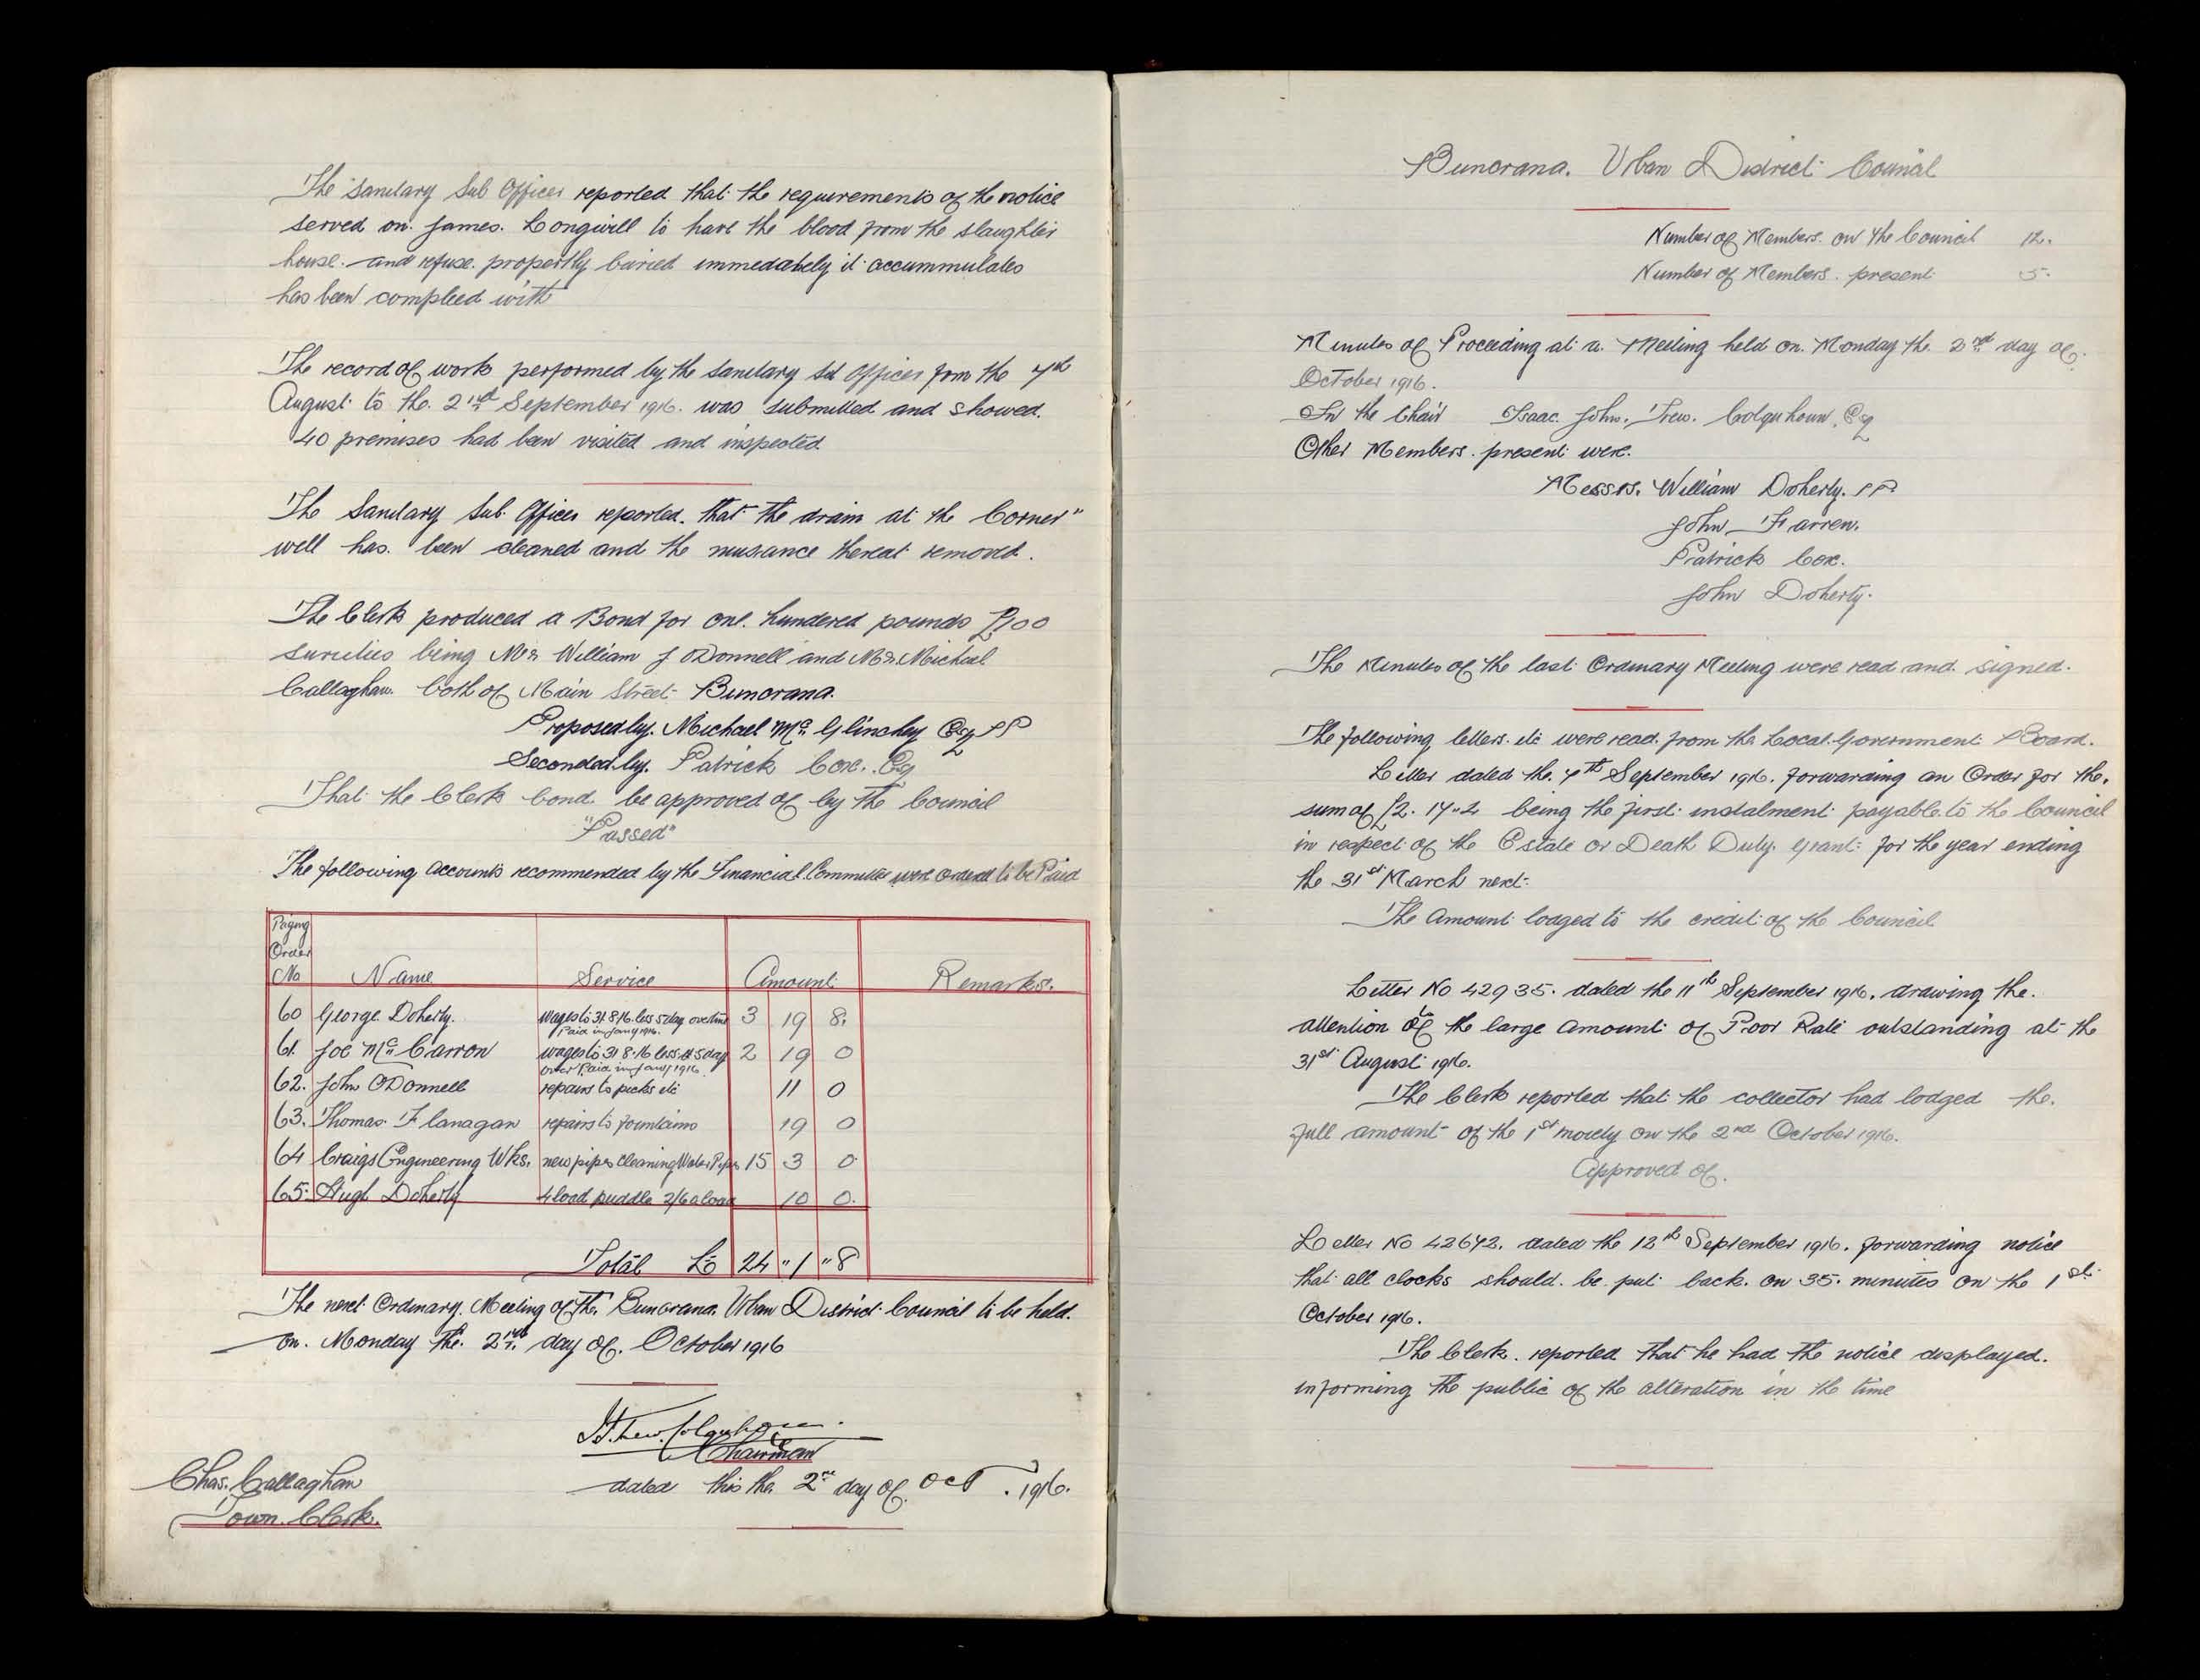 The Sanitary Sub Officer reported that the requirements of the notice
served on James Longwill to have the blood from the slaughter
house and refuse propertly buried immedately it accummulates
has been complied with
The record of work performed by the Sanitary Sub Officer from the 7th
August to the 2nd September 1916. was submitted and showed
40 premises had been visited and inspected
The Sanitary Sub Officer reported that the drain at the Corner"
well has been cleaned and the nuisance thereat removed.
The Clerk produced a Bond for one hundered pounds £100
sureties being Mr William J O'Donnell and Mr Michael
Callaghan both of Main Street Buncrana.
Proposed by. Michael McGlinchey Esq JP
Seconded by. Patrick Cox. Esq
That the Clerk bond be approved of by the Council
"Passed"
The following accounts recommended by the Financial Committee were ordered to be Paid
Paying
Order
No Name Service Amount Remarks.
60 George Doherty. wages to 31.8.16 less 5 day overtime 3 19 8.
Paid in Jany 1916.
61. Joe McCarron wages to 31.8.16 less 5 day 2 19 0
over Paid in Jany 1916
62. John O'Donnell repairs to picks etc 11 0
63. Thomas Flanagan repairs to fountains 19 0
64 Craigs Engineering Wks. new pipes Cleaning Water Pipes 15 3 0
65. Hugh Doherty 4 load puddle 2/6 a load 10 0.
Total £ 24 " 1 " 8
The next Ordinary Meeting of the Buncrana Urban District Council to be held.
on. Monday the 2nd day of. October 1916
I J. Trew. Colquhoun.
Chairman
dated this the 2nd day of Oct. 1916.
Chas. Callaghan
Town Clerk.
Buncrana. Urban District Council
Number of Members on the Council 12.
Number of Members present 5.
Minutes of Proceeding at a Meeting held on Monday the 2nd day of
October 1916.
In the Chair Isaac. John. Trew. Colquhoun, Esq
Other Members present were.
Messrs. William Doherty. JP.
John Farren.
Patrick Cox.
John Doherty.
The Minutes of the last Ordinary Meeting were read and signed.
The following letters etc were read from the Local Government Board.
Letter dated the 7th September 1916. forwarding an Order for the
sum of £2. 17"2 being the first instalment payable to the Council
in respect of the Estate or Death Duty Grant for the year ending
the 31st March next.
The Amount lodged to the credit of the Council
Letter No 42935. dated the 11th September 1916. drawing the
attention to the large amount of Poor Rate outstanding at the
31st August 1916.
The Clerk reported that the collector had lodged the
full amount of the 1st moiety on the 2nd October 1916.
Approved of.
Letter No 42672. dated the 12th September 1916. forwarding notice
that all clocks should be put back on 35 minutes on the 1st
October 1916.
The Clerk reported that he had the notice displayed
informing the public of the alteration in the time